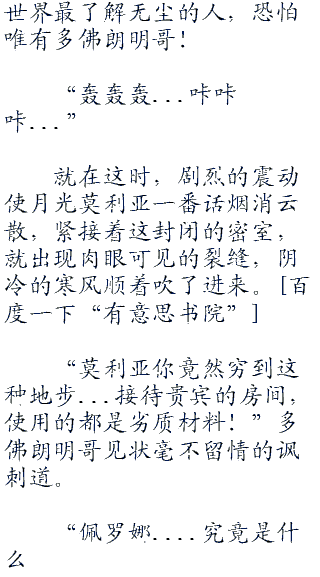 世界最了解无尘的人，恐怕
唯有多佛朗明哥！
“轰轰轰...咔咔
咔...”
就在这时，剧烈的震动
使月光莫利亚一番话烟消云
散，紧接着这封闭的密室，
就出现肉眼可见的裂缝，阴
冷的寒风顺着吹了进来。[百
度一下“有意思书院”]
“莫利亚你竟然穷到这
种地步...接待贵宾的房间，
使用的都是劣质材料！”多
佛朗明哥见状毫不留情的讽
刺道。
“佩罗娜....究竟是什
么